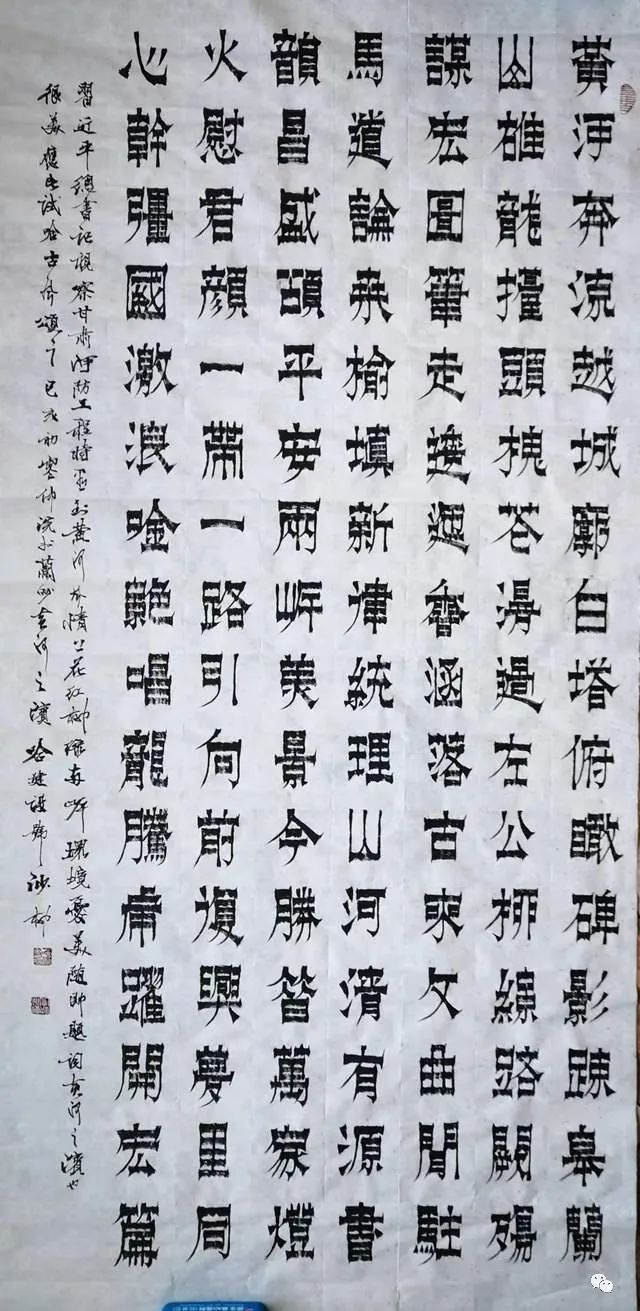 黃河奔流越城廓白塔俯瞰碑影疎皋蘭
山雄龍擡頭槐蒼邊左公柳綠路殤
謀宏圖筆走逶迤香涵落古來文曲聞駐
馬道論桑榆填新律統理山河清有源書
韻昌盛頌平安兩岸美景今勝昔萬家燈
火慰君顏一帶一路引向前復興夢里同
心幹彊國激浪唫唱龍騰虎躍開宏篇
習近平總書記視察甘肅河防工程時來到黃河水情花紅柳綠兩岸環境優美隨即題詞黃河之濱也
很美應此試吟古頌之己亥初寒仲浣於蘭州黃河之濱哈建設號沙柳